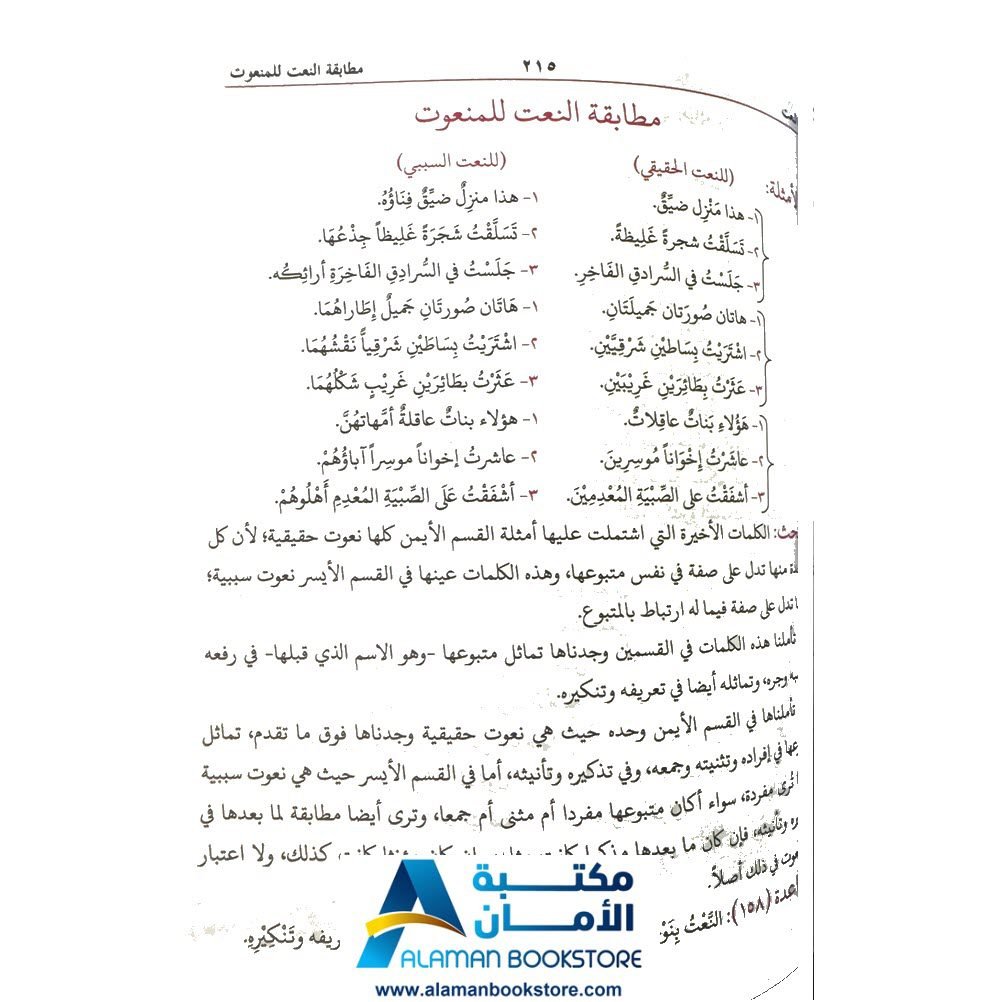 مطابقة النعت للمنعوت
٢١٥
مطابقة النعت للمنعوت
(للنعت الحقيقي)
(للنعت السببي)
١- هذا مَنْزِل ضيِّقٌ.
١- هذا منزِلٌ ضيِّقٌ فِنَاؤُهُ.
٢- تَسَلَّقْتُ شجرةً غَلِيظةً.
٢- تَسَلَّقْتُ شَجَرَةً غَلِيظاً جِذْعُهَا.
٣- جَلَسْتُ في السُّرادقِ الفَاخِرِ.
٣- جَلَسْتُ في السُّرادِقِ الفَاخِرَةِ أرائِكُه.
١- هاتان صُورَتان جَميلَتَانِ.
١- هَاتَان صُورتَانِ جَميلٌ إِطَاراهُمَا.
٢- اشْتَرَيْتُ بِسَاطيْنِ شَرْقِيَّيْنِ.
٢- اشْتَرَيْتُ بِسَاطَيْنِ شَرْقِياًّ نَقْشُهُمَا.
٣- عَثَرْتُ بِطَائِرَيْنِ غَرِيْبَيْنِ.
٣- عَثَرْتُ بطَائِرَيْنِ غَرِيْبٍ شَكْلُهُمَا.
١- هَؤُلاءِ بَناتٌ عاقِلاتٌ.
١- هؤلاء بناتٌ عاقلةٌ أمَّهاتهُنَّ.
٢- عاشَرْتُ إِخْوَاناً مُوسِرِينَ.
٢- عاشرتُ إخواناً موسِراً آباؤُهُمْ.
٣- أشفَقْتُ على الصِّبْيَةِ المُعْدِمِيْنَ.
٣- أشْفَقْتُ عَلَى الصِّبْيَةِ المُعْدِمِ أَهْلُوهُمْ.
الكلمات الأخيرة التي اشتملت عليها أمثلة القسم الأيمن كلها نعوت حقيقية؛ لأن كل
منها تدل على صفة في نفس متبوعها، وهذه الكلمات عينها في القسم الأيسر نعوت سببية؛
تدل على صفة فيما له ارتباط بالمتبوع.
تأملنا هذه الكلمات في القسمين وجدناها تماثل متبوعها -وهو الاسم الذي قبلها- في رفعه
وجره، وتماثله أيضا في تعريفه وتنكيره.
تأملناها في القسم الأيمن وحده حيث هي نعوت حقيقية وجدناها فوق ما تقدم، تماثل
في إفراده وتثنيته وجمعه، وفي تذكيره وتأنيثه، أما في القسم الأيسر حيث هي نعوت سببية
تُرى مفردة، سواء أكان متبوعها مفردا أم مثنى أم جمعا، وترى أيضا مطابقة لما بعدها في
وتأنيثه، فإن كان ما بعدها مذكرا كانت كذلك، ولا اعتبار
في ذلك أصلاً.
(١٥٨): النَّعْتُ
وتَنْكِيْرِهِ.
مكتبة
الأمان
ALAMAN BOOKSTORE
www.alamanbookstore.com